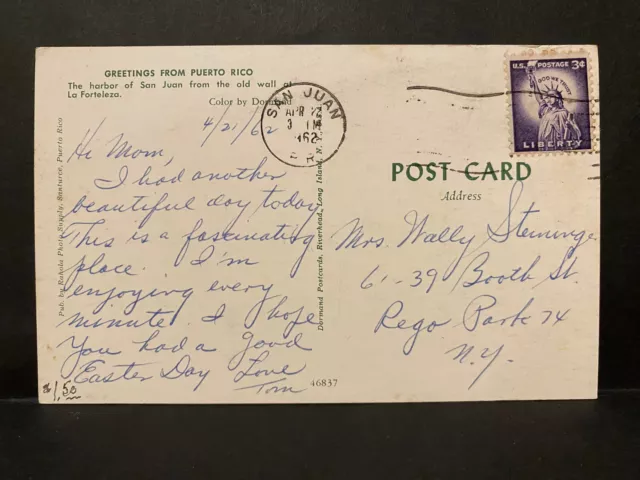 GREETINGS FROM PUERTO RICO
The harbor of San Juan from the old wall at
La Forteleza.
Color by Dormand
4/21/62
Hi Mom,
I had another
beautiful day today.
This is a fascinating
place. I'm
enjoying every
minute. I hope
you had a good
Easter Day Love
Tom
$1.50
46837
Pub. by Rahola Photo Supply, Santurce, Puerto Rico
Dormand Postcards, Riverhead, Long Island, N.Y.
SAN JUAN
APR 22
1962
P.R.
U.S. POSTAGE 3¢
IN GOD WE TRUST
LIBERTY
POST CARD
Address
Mrs. Wally
61-39 Booth St.
Rego Park 74
N.Y.